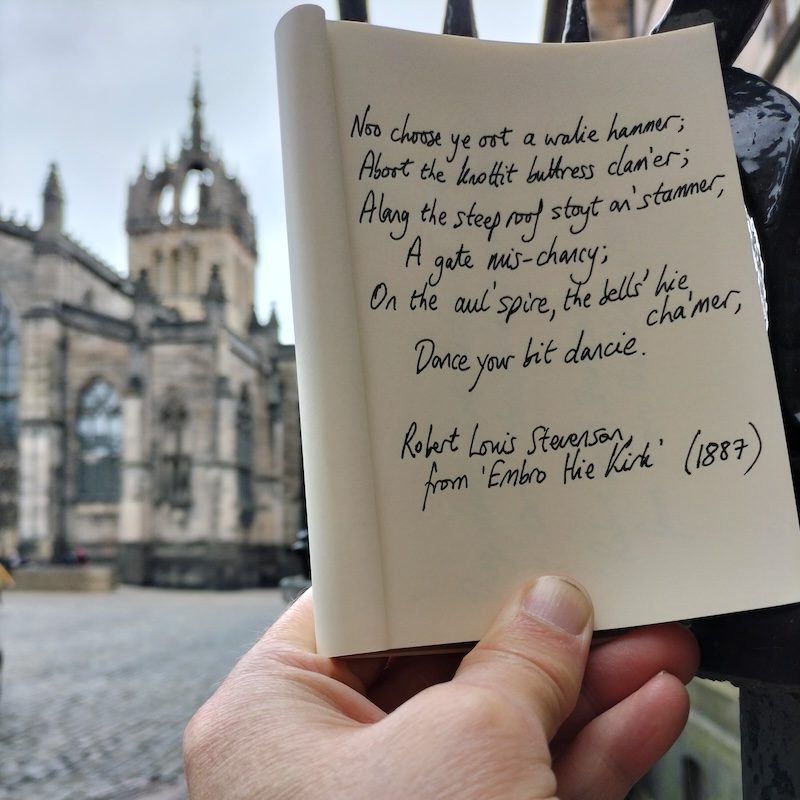 Noo choose ye oot a walie hammer;
Aboot the knottit buttress clam'er;
Alang the steep roof stoyt an' stammer,
A gate mis-chancy;
On the aul' spire, the bells' hie
cha'mer,
Dance your bit dancie.
Robert Louis Stevenson,
from 'Embro Hie Kirk' (1887)